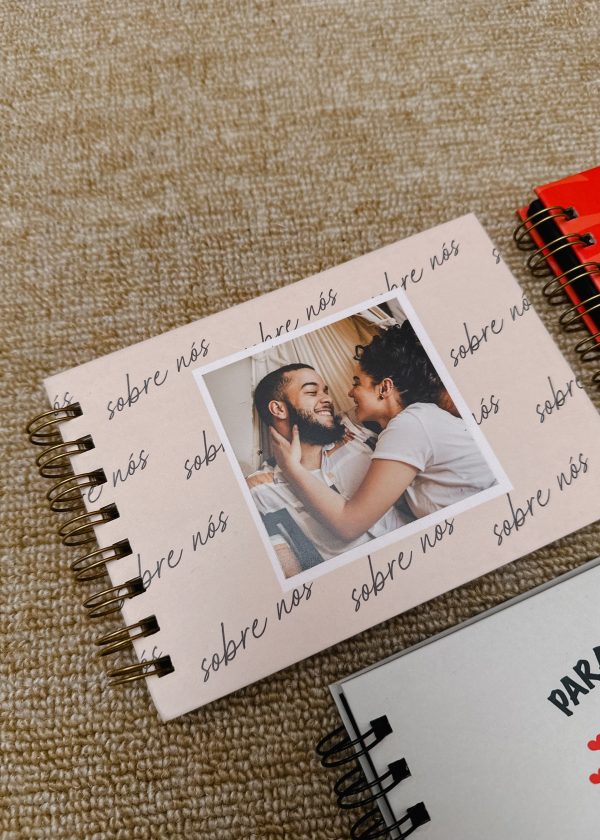 sobre nós
sobre nós
sobre nós
nós
sobre nós
sobre nós
nós
sobre
sobre
nós
sobre nós
sobre nós
sobre nós
sobre nós
nós
PARA